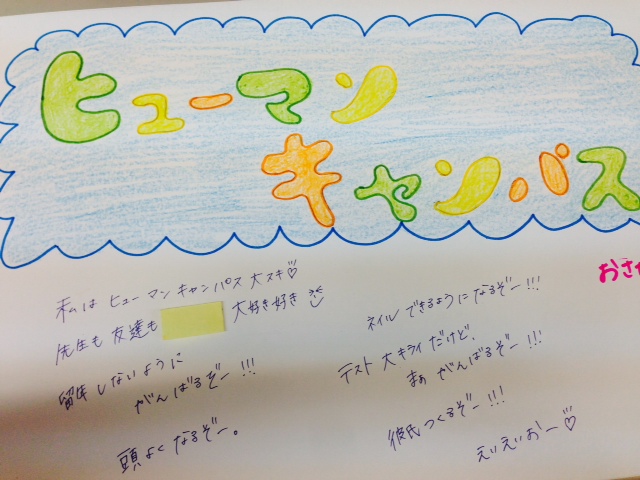 ヒューマン
キャンパス
おさ
私は ヒューマンキャンパス 大スキ♡
先生も 友達も 大好き好き
留年しないように
がんばるぞー!!!
頭よくなるぞー。
ネイルできるようになるぞー!!!
テスト大キライだけど、
まぁ がんばるぞー!!!
彼氏つくるぞー!!!
えいえいおー♡